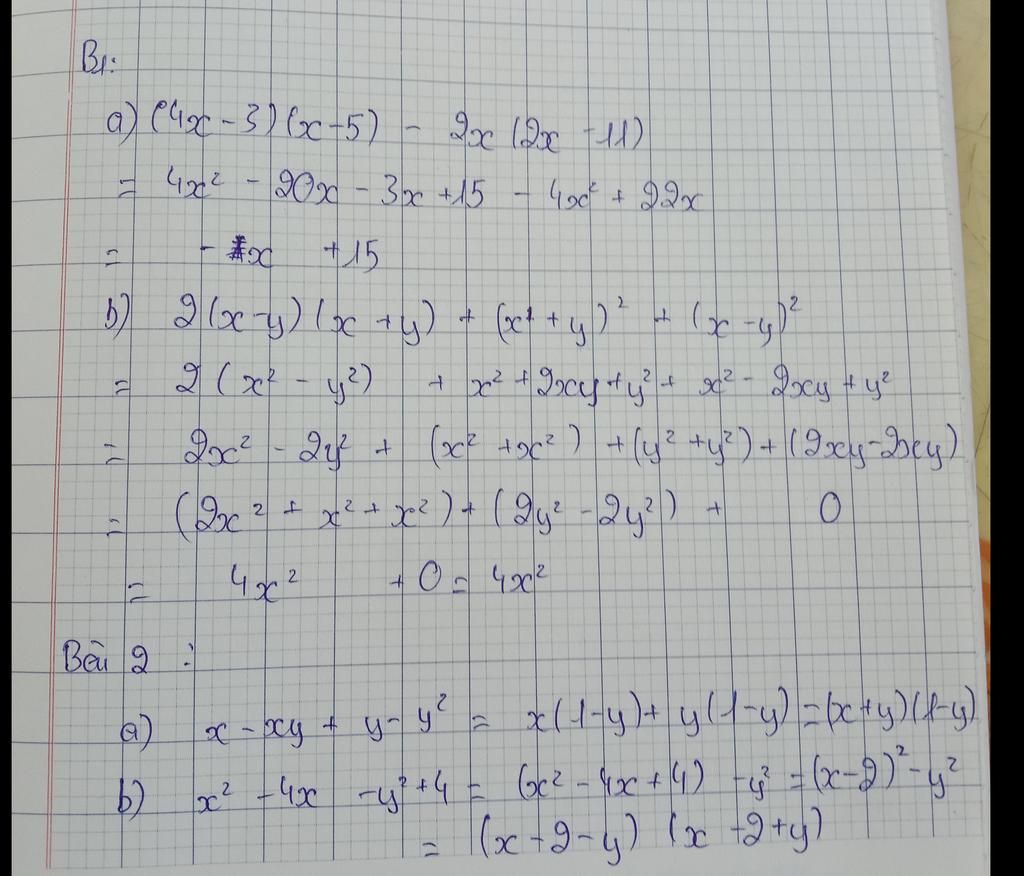 B1:
a) (4x - 3)(x - 5) - 2x (2x - 11)
= 4x² - 20x - 3x + 15 - 4x² + 22x
= - x + 15
b) 2(x - y)(x + y) + (x + y)² + (x - y)²
= 2(x² - y²) + x² + 2xy + y² + x² - 2xy + y²
= 2x² - 2y² + (x² + x²) + (y² + y²) + (2xy - 2xy)
= (2x² + x² + x²) + (2y² - 2y²) + 0
= 4x² + 0 = 4x²
Bài 2 :
a) x - xy + y - y² = x(1 - y) + y(1 - y) = (x + y)(1 - y)
b) x² - 4x - y² + 4 = (x² - 4x + 4) - y² = (x - 2)² - y²
= (x - 2 - y) (x - 2 + y)